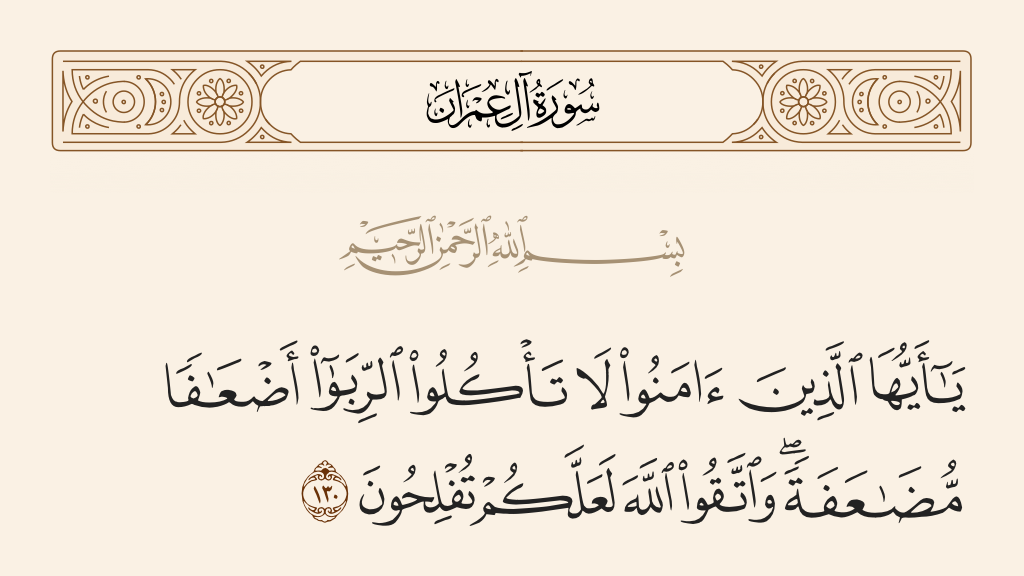 سُورَةُ آلِ عِمْرَانَ
بِسْمِ ٱللَّهِ ٱلرَّحْمَٰنِ ٱلرَّحِيمِ
يَـٰٓأَيُّهَا ٱلَّذِينَ ءَامَنُوا۟ لَا تَأْكُلُوا۟ ٱلرِّبَوٰٓا۟ أَضْعَـٰفًا
مُّضَـٰعَفَةً ۖ وَٱتَّقُوا۟ ٱللَّهَ لَعَلَّكُمْ تُفْلِحُونَ ١٣٠